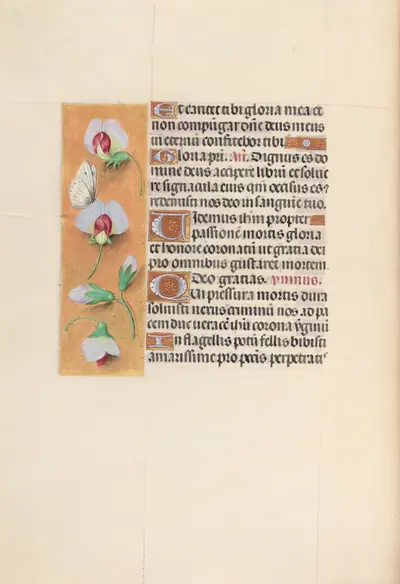 Et cantet tibi gloria mea et
non compungar dn̄e deus meus
in eternū confitebor tibi.
Gloria pri. Añ. Dignus es do
mine deus accipere librū et solue
re signacula eius qm̄ occisus es ⁊
redemisti nos deo in sanguine tuo.
Videmus ihm̄ propter
passionē mortis gloria
et honore coronatū ut gratia dei
pro omnibus gustaret mortem
Deo gratias. ymnus.
Qui pressura mortis dura
soluisti nexus criminū nos ad pa
cem duc ueracē ihū corona v̓ginū
In flagellis potū fellis bibisti
amarissime pro pccīs perpetrati